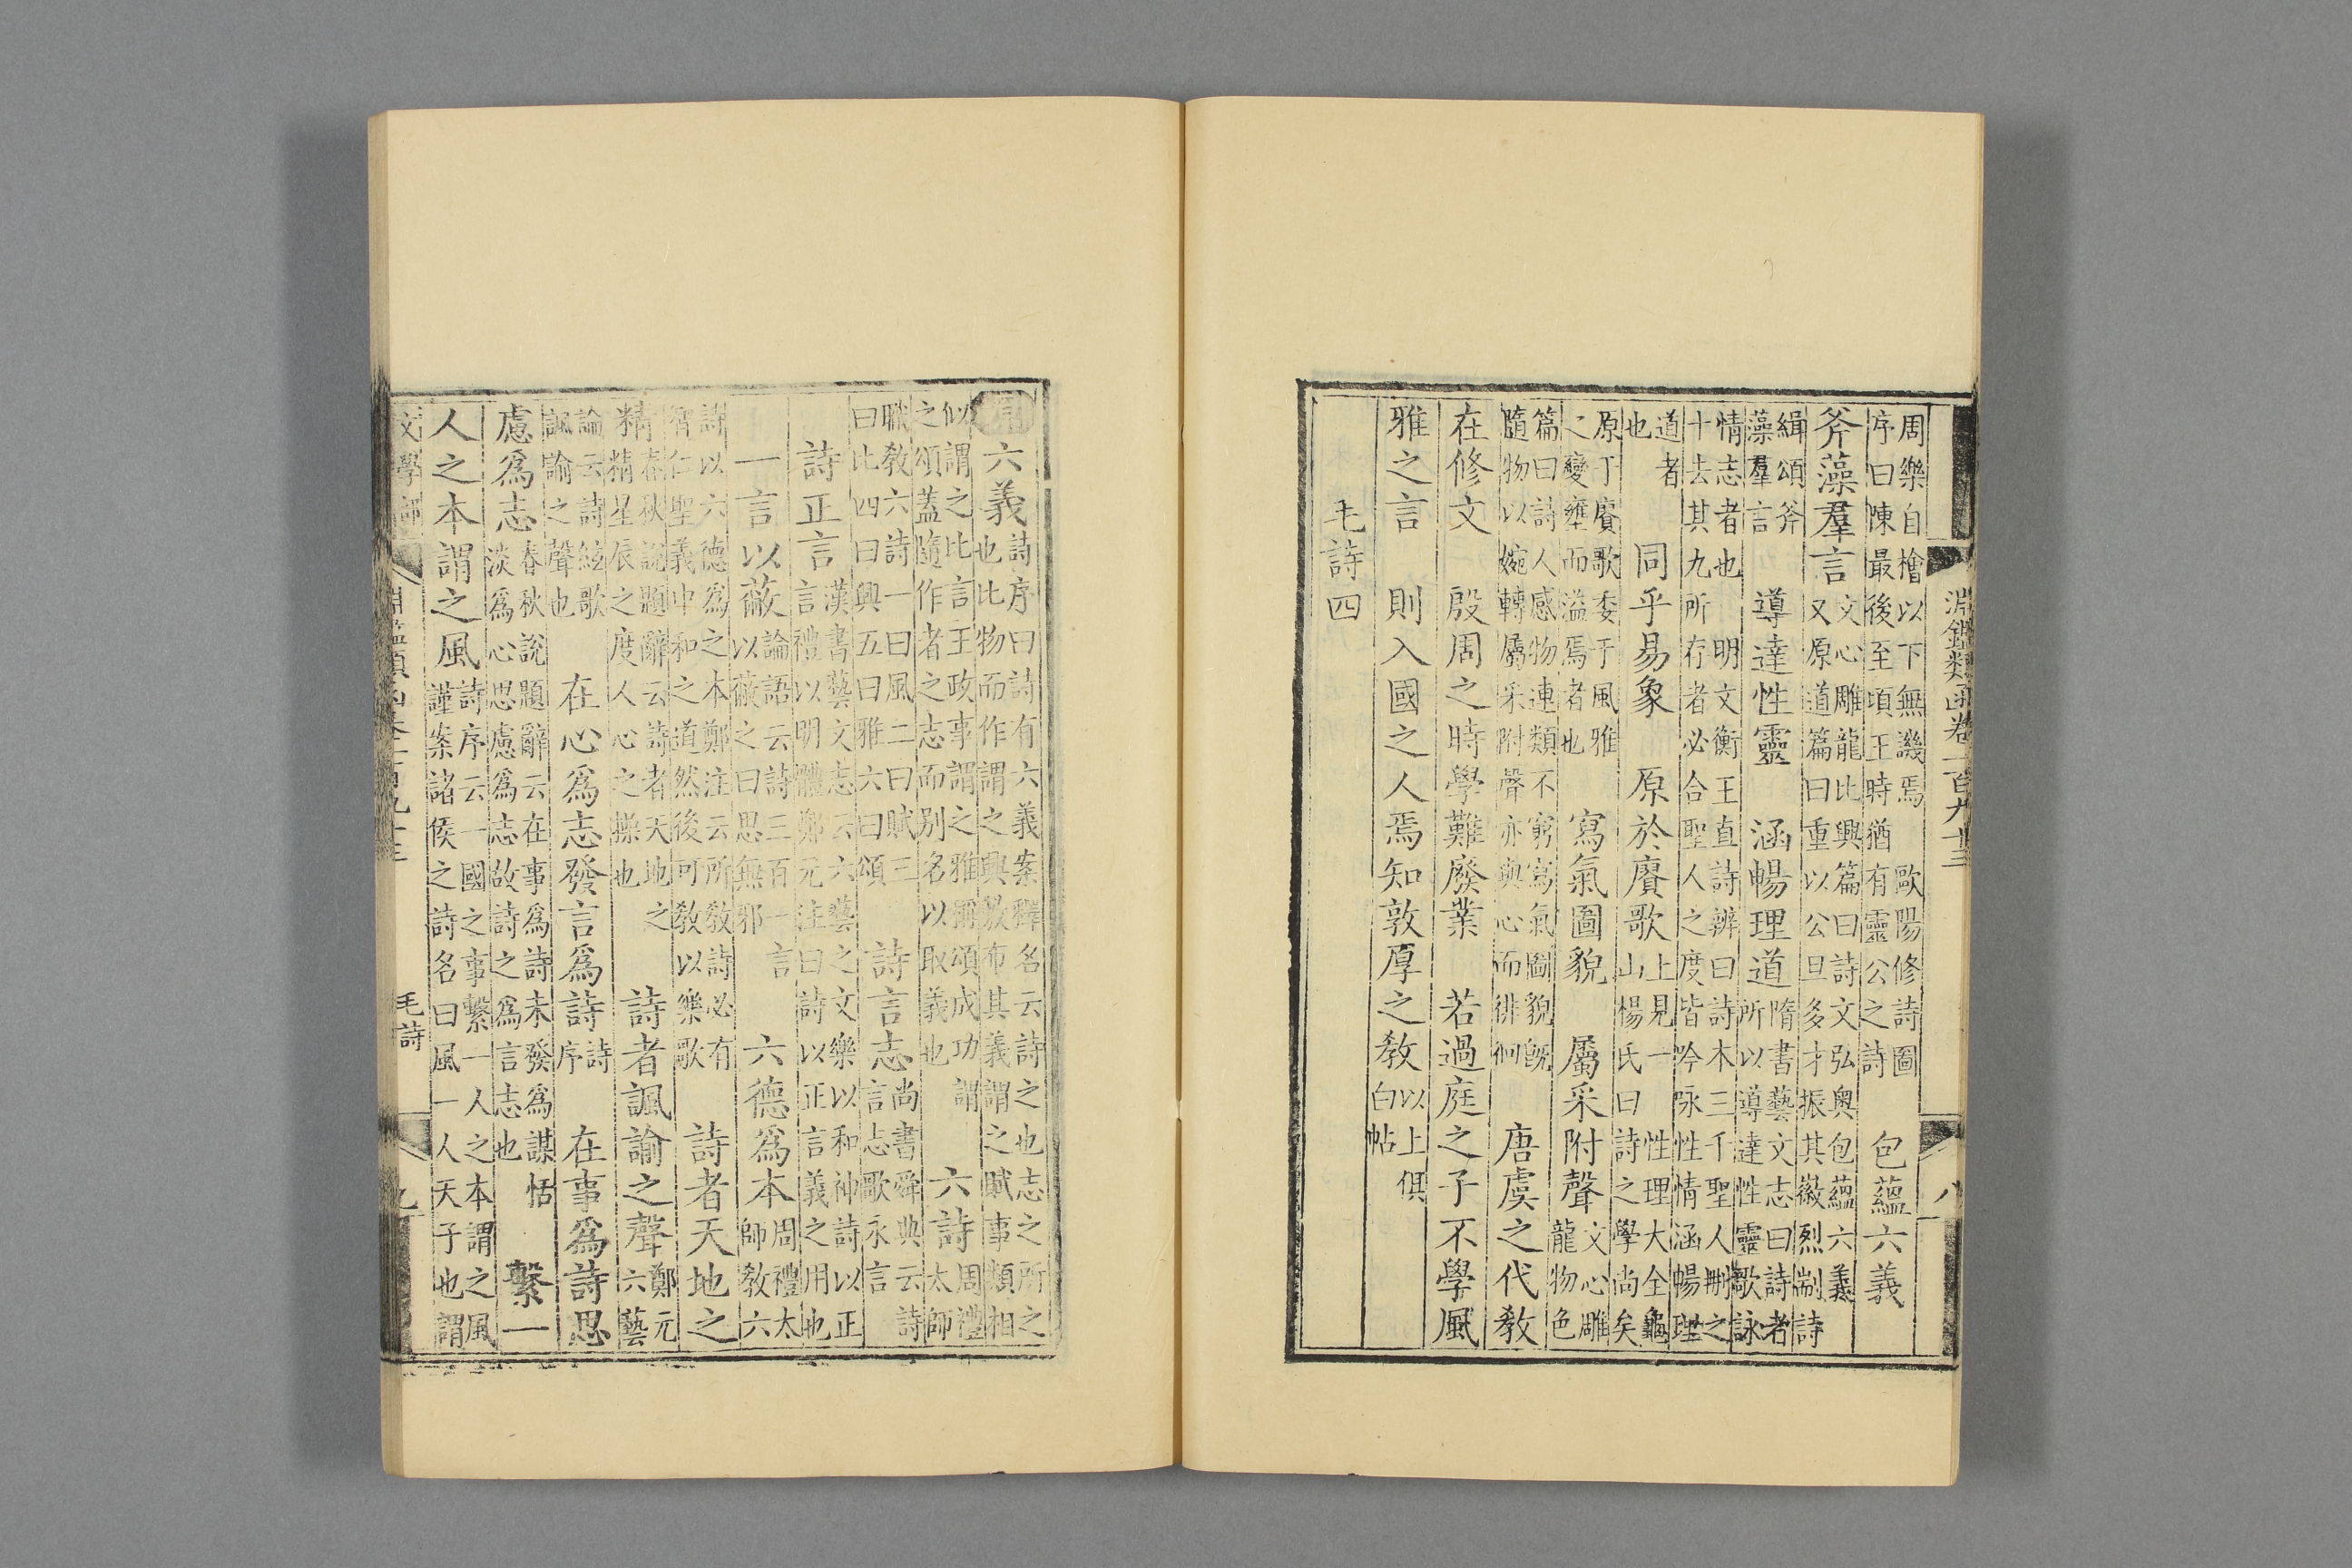 淵鑑類函卷一百九十三
八
周樂自檜以下無譏焉
歐陽修詩圖
序曰陳最後至頃王時猶有靈公之詩
包蘊六義
斧藻羣言
文心雕龍比興篇曰詩文弘奥包蘊六義
又原道篇曰重以公旦多才振其徽烈剬詩
緝頌斧
藻羣言
導達性靈
涵暢理道
隋書藝文志曰詩者
所以導達性靈歌詠
情志者也
明文衡王直詩辨曰詩本三千聖人刪之
十去其九所存者必合聖人之度皆吟咏性情涵暢理
道者
也
同乎易象
原於賡歌
上見一
山楊氏曰
性理大全龜
詩之學尚矣
原于賡歌委于風雅
之變壅而溢焉者也
寫氣圖貌
屬采附聲
文心雕
龍物色
篇曰詩人感物連類不窮寫氣圖貌旣
隨物以婉轉屬采附聲亦與心而徘徊
唐虞之代敎
在修文
殷周之時學難廢業
若過庭之子不學風
雅之言
則入國之人焉知敦厚之敎
以上俱
白帖
毛詩四
六義
詩序曰詩有六義案釋名云詩之也志之所之
也比物而作謂之興敷布其義謂之賦事類相
似謂之比言王政事謂之雅稱頌成功謂
之頌蓋隨作者之志而别名以取義也
六詩
周禮
太師
職敎六詩一曰風二曰賦三
曰比四曰興五曰雅六曰頌
詩言志
尚書舜典云詩
言志歌永言
詩正言
漢書藝文志云六藝之文樂以和神詩以正
言禮以明體鄭元注曰詩以正言義之用也
一言以蔽
論語云詩三百一言
以蔽之曰思無邪
六德爲本
周禮太
師敎六
詩以六德爲之本鄭注云所敎詩必有
智仁聖義中和之道然後可敎以樂歌
詩者天地之
精
春秋說題辭云詩者天地之
精星辰之度人心之操也
詩者諷諭之聲
鄭元
六藝
論云詩絃歌
諷諭之聲也
在心爲志發言爲詩
詩
序
在事爲詩思
慮爲志
春秋說題辭云在事爲詩未發爲謀恬
淡爲心思慮爲志故詩之爲言志也
繫一
人之本謂之風
詩序云一國之事繫一人之本謂之風
謹案諸侯之詩名曰風一人天子也謂
文學部
毛詩
九